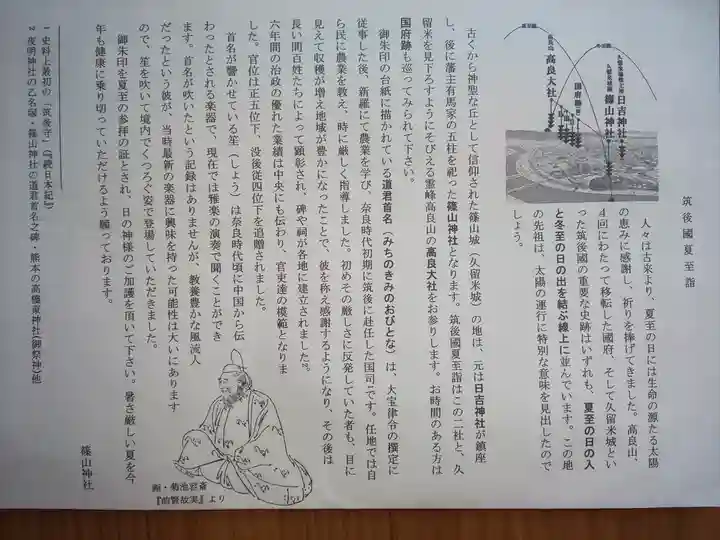 筑後國夏至詣
人々は古来より、夏至の日には生命の源たる太陽
の恵みに感謝し、祈りを捧げてきました。高良山、
4回にわたって移転した國府、そして久留米城とい
った筑後國の重要な史跡はいずれも、夏至の日の入
と冬至の日の出を結ぶ線上に並んでいます。この地
の先祖は、太陽の運行に特別な意味を見出したので
しょう。
高良山
高良大社
国府跡
久留米城跡
篠山神社
日吉神社
古くから神聖な丘として信仰された篠山城(久留米城)の地は、元は日吉神社が鎮座
し、後に藩主有馬家の五柱を祀った篠山神社となります。筑後國夏至詣はこの二社と、久
留米を見下ろすようにそびえる霊峰高良山の高良大社をお参りします。お時間のある方は
国府跡も巡ってみられて下さい。
御朱印の台紙に描かれている道君首名(みちのきみのおびとな)は、大宝律令の撰定に
従事した後、新羅にて農業を学び、奈良時代初期に筑後に赴任した国司です。任地では自
ら民に農業を教え、時に厳しく指導しました。初めその厳しさに反発していた者も、目に
見えて収穫が増え地域が豊かになったことで、彼を称え感謝するようになり、その後は
長い間百姓たちによって顕彰され、碑や祠が各地に建立されました。
六年間の治政の優れた業績は中央にも伝わり、官吏達の模範となりま
した。官位は正五位下、没後従四位下を追贈されました。
首名が響かせている笙(しょう)は奈良時代頃に中国から伝
わったとされる楽器で、現在では雅楽の演奏で聞くことができ
ます。首名が吹いたという記録はありませんが、教養豊かな風流人
だったという彼が、当時最新の楽器に興味を持った可能性は大いにあります
ので、笙を吹いて境内でくつろぐ姿で登場していただきました。
御朱印を夏至の参拝の証とされ、日の神様のご加護を頂いて下さい。暑さ厳しい夏を今
年も健康に乗り切っていただけるよう願っております。
篠山神社
史料上最初の「筑後守」(『続日本紀』)
夜明神社の乙名塚・篠山神社の道君首名之碑・熊本の高橋東神社(御祭神)他
画・菊池容斎
『前賢故実』より